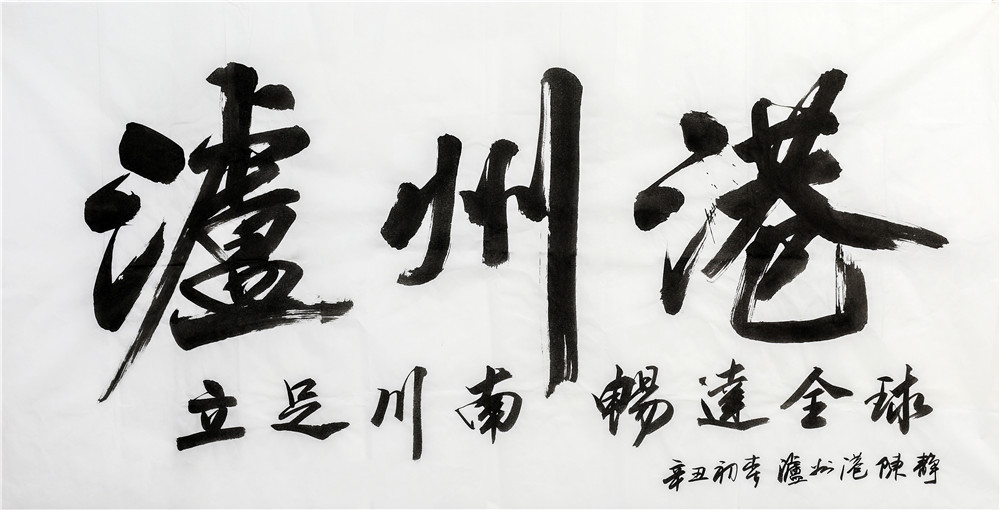 瀘州港
立足川南 暢達全球
辛丑初春 瀘州港陳靜